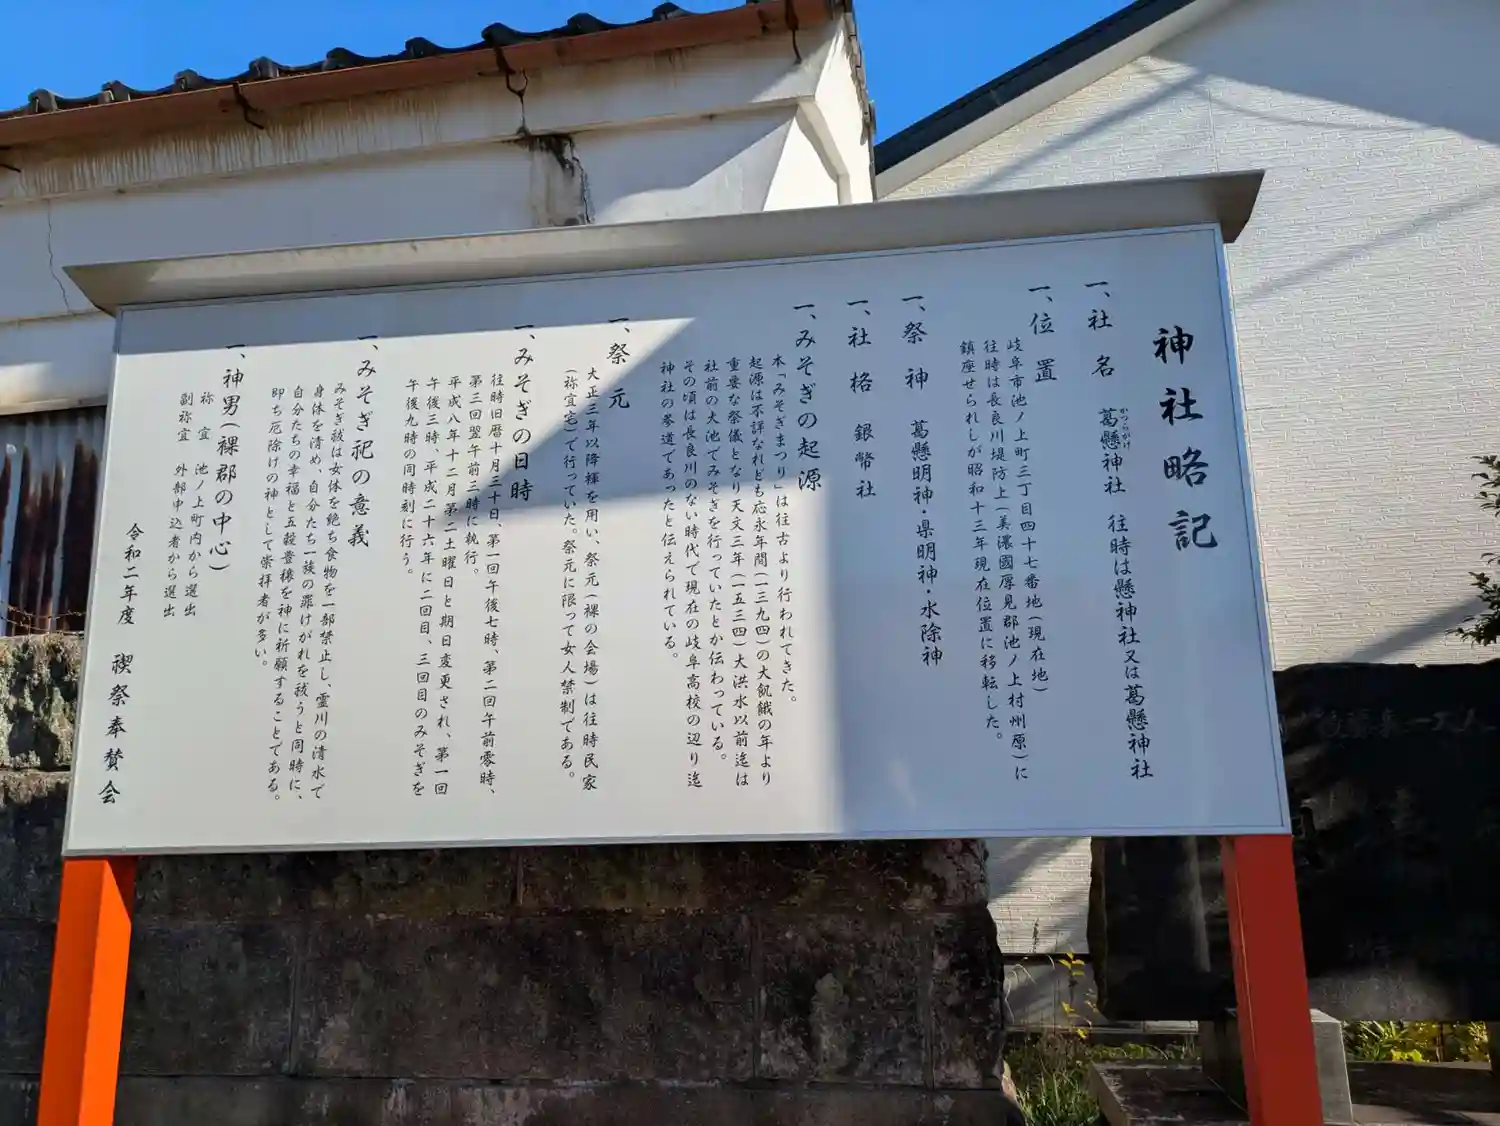 神社略記
一、社名 葛懸神社 往時は懸神社又は葛懸神社
かつらがけ
一、位置
岐阜市池ノ上町三丁目四十七番地(現在地)
往時は長良川堤防上(美濃國厚見郡池ノ上村州原)に
鎮座せられしが昭和十三年現在位置に移転した。
一、祭神 葛懸明神・県明神・水除神
一、社格 銀幣社
一、みそぎの起源
本「みそぎまつり」は往古より行われてきた。
起源は不詳なれども応永年間(一三九四)の大飢餓の年より
重要な祭儀となり天文三年(一五三四)大洪水以前迄は
社前の大池でみそぎを行っていたとか伝わっている。
その頃は長良川のない時代で現在の岐阜高校の辺り迄
神社の参道であったと伝えられている。
一、祭元
大正三年以降褌を用い、祭元(裸の会場)は往時民家
(祢宜宅)で行っていた。祭元に限って女人禁制である。
一、みそぎの日時
往時旧暦十月三十日、第一回午後七時、第二回午前零時、
第三回翌午前三時に執行。
平成八年十二月第二土曜日と期日変更され、第一回
午後三時、平成二十六年に二回目、三回目のみそぎを
午後九時の同時刻に行う。
一、みそぎ祀の意義
みそぎ祓は女体を絶ち食物を一部禁止し、霊川の清水で
身体を清め、自分たち一族の罪けがれを祓うと同時に、
自分たちの幸福と五穀豊穣を神に祈願することである。
即ち厄除けの神として崇拝者が多い。
一、神男(裸郡の中心)
祢宜 池ノ上町内から選出
副祢宜 外部申込者から選出
令和二年度 禊祭奉賛会